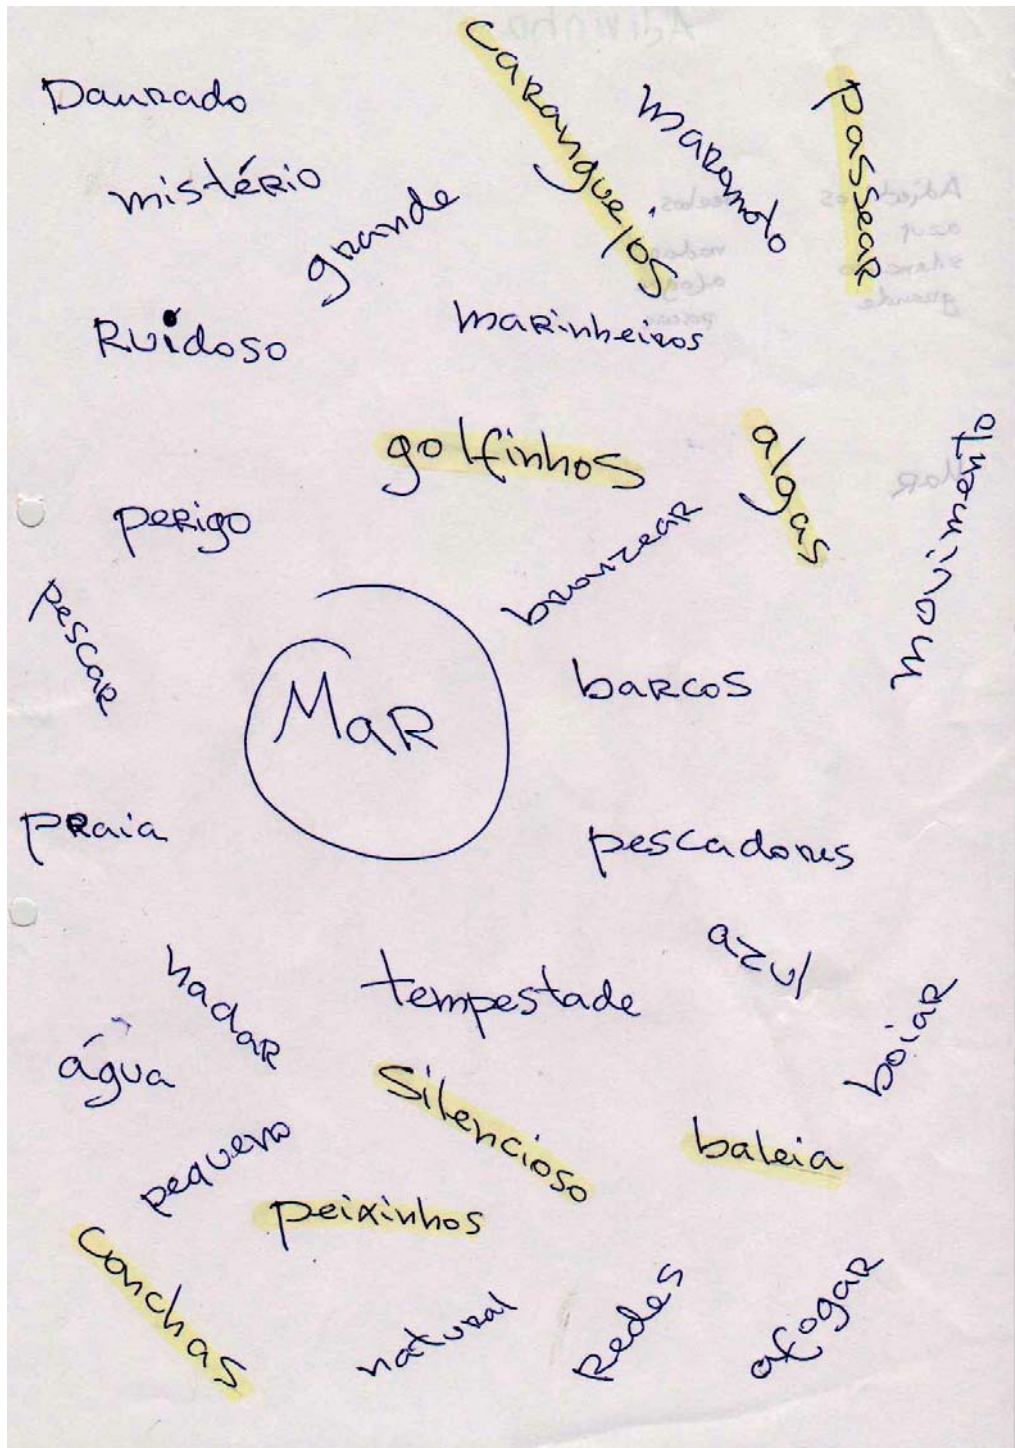 Daurado
mistério
grande
Caranguejos
maremoto
passear
Ruidoso
marinheiros
golfinhos
algas
movimento
perigo
bronzear
pescar
Mar
barcos
praia
pescadores
nadar
tempestade
azul
boiar
água
Silencioso
baleia
pequeno
peixinhos
Conchas
natural
Redes
afogar